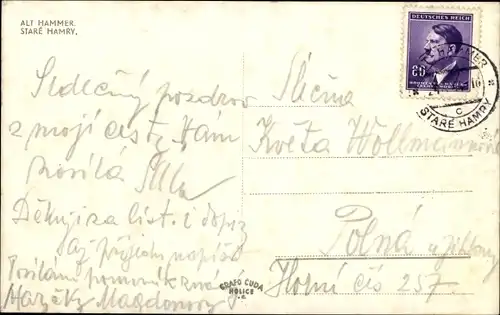 ALT HAMMER.
STARÉ HAMRY.
DEUTSCHES REICH
80
STARÉ HAMRY
C
Srdečný pozdrav
z mojí cesty Vám
posílá
Děkuji za list. i dopis
až přijedu napíšu
Posílám pomník
Maryčky Magdonovy
Slečna
Květa Wollmannová
Polná u Jihlavy
Horní čís 257.
GRAFO ČUDA
HOLICE